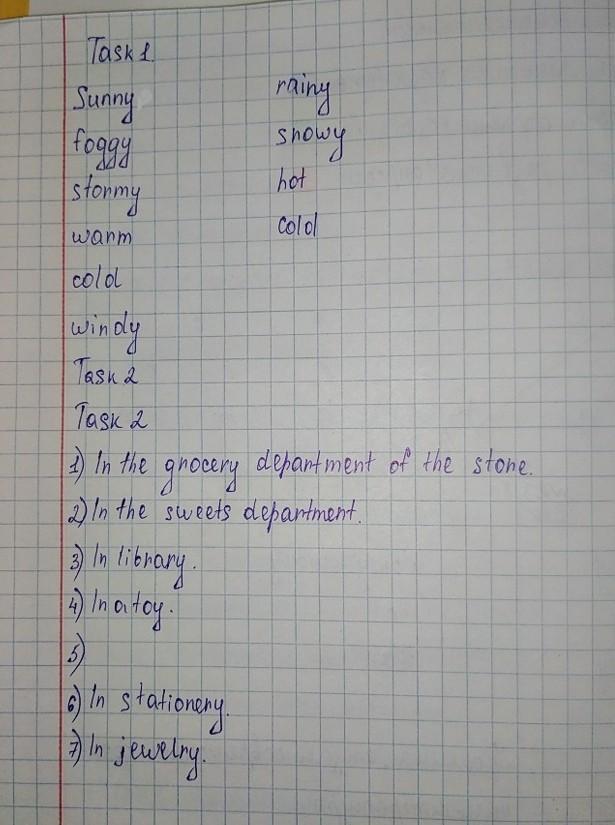 Task 1.
Sunny rainy
foggy snowy
stormy hot
warm cold
cold
windy
Task 2
Task 2
1) In the grocery department of the store.
2) In the sweets department.
3) In library.
4) In a toy.
5)
6) In stationery.
7) In jewelry.